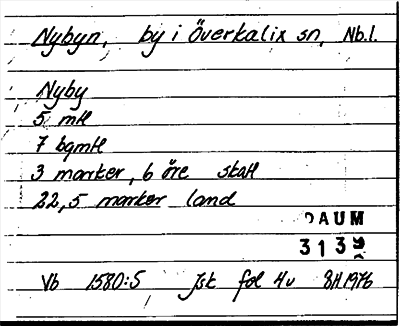 Nybyn, by i Överkalix sn, Nb.l.
Nyby
5 mtl
7 bgmtl
3 marker, 6 öre skatt
22,5 marker land
DAUM
313
Vb 1580:5 Jsk fol 4v BH 1976